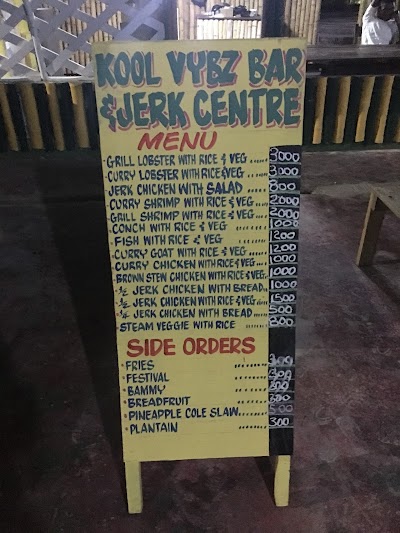 KOOL VYBZ BAR
& JERK CENTRE
MENU
GRILL LOBSTER WITH RICE & VEG ...... 3000
CURRY LOBSTER WITH RICE & VEG ..... 3000
JERK CHICKEN WITH SALAD ..... 800
CURRY SHRIMP WITH RICE & VEG .... 2000
GRILL SHRIMP WITH RICE & VEG .... 2000
CONCH WITH RICE & VEG
FISH WITH RICE & VEG 1200
CURRY GOAT WITH RICE & VEG 1200
CURRY CHICKEN WITH RICE & VEG 1000
BROWN STEW CHICKEN WITH RICE & VEG. 1000
½ JERK CHICKEN WITH BREAD.. 1000
JERK CHICKEN WITH RICE & VEG 1500
¼ JERK CHICKEN WITH BREAD .... 500
STEAM VEGGIE WITH RICE ........ 800
SIDE ORDERS
FRIES ......... 300
FESTIVAL .........
BAMMY .........
BREADFRUIT .........
PINEAPPLE COLE SLAW........ 500
PLANTAIN ......... 300